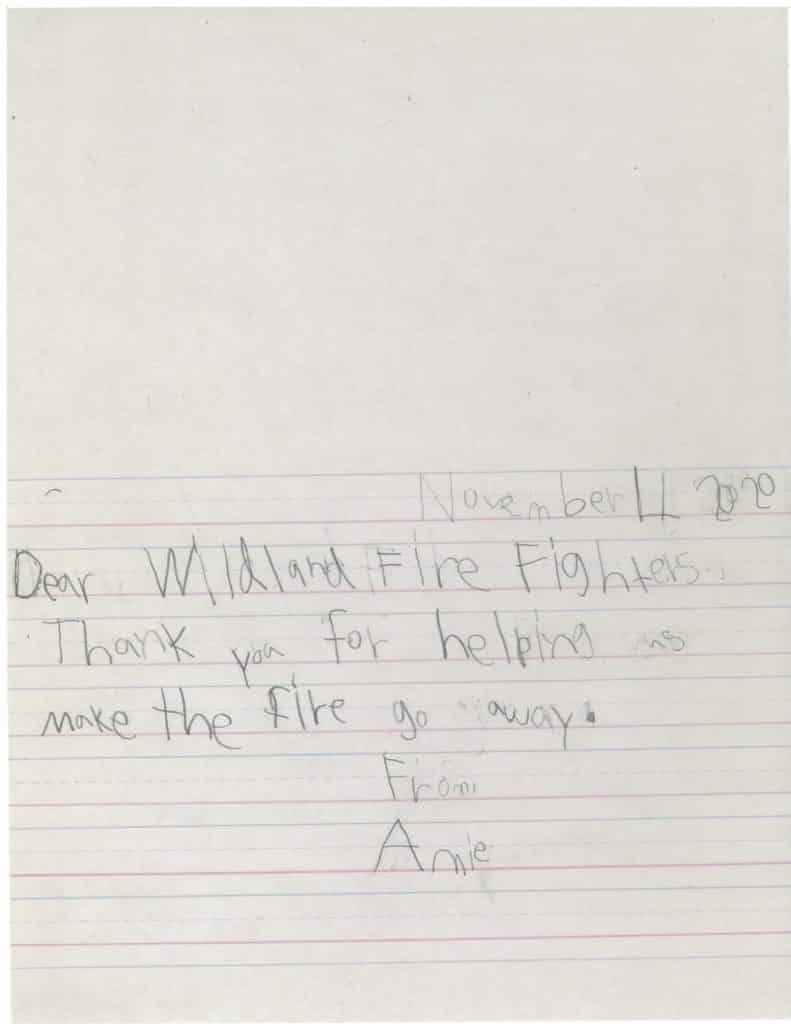 November 4 2020
Dear Wildland Fire Fighters,
Thank you for helping us
make the fire go away.
From
Amie